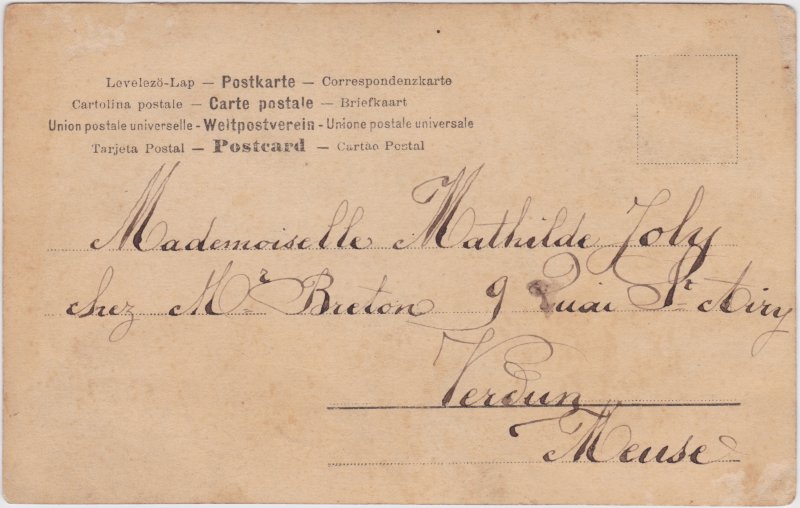 Levelezö-Lap — Postkarte — Correspondenzkarte
Cartolina postale — Carte postale — Briefkaart
Union postale universelle - Weltpostverein - Unione postale universale
Tarjeta Postal — Postcard — Cartão Postal
Mademoiselle Mathilde Joly
chez Mr Breton 9 Quai St Airy
Verdun
Meuse